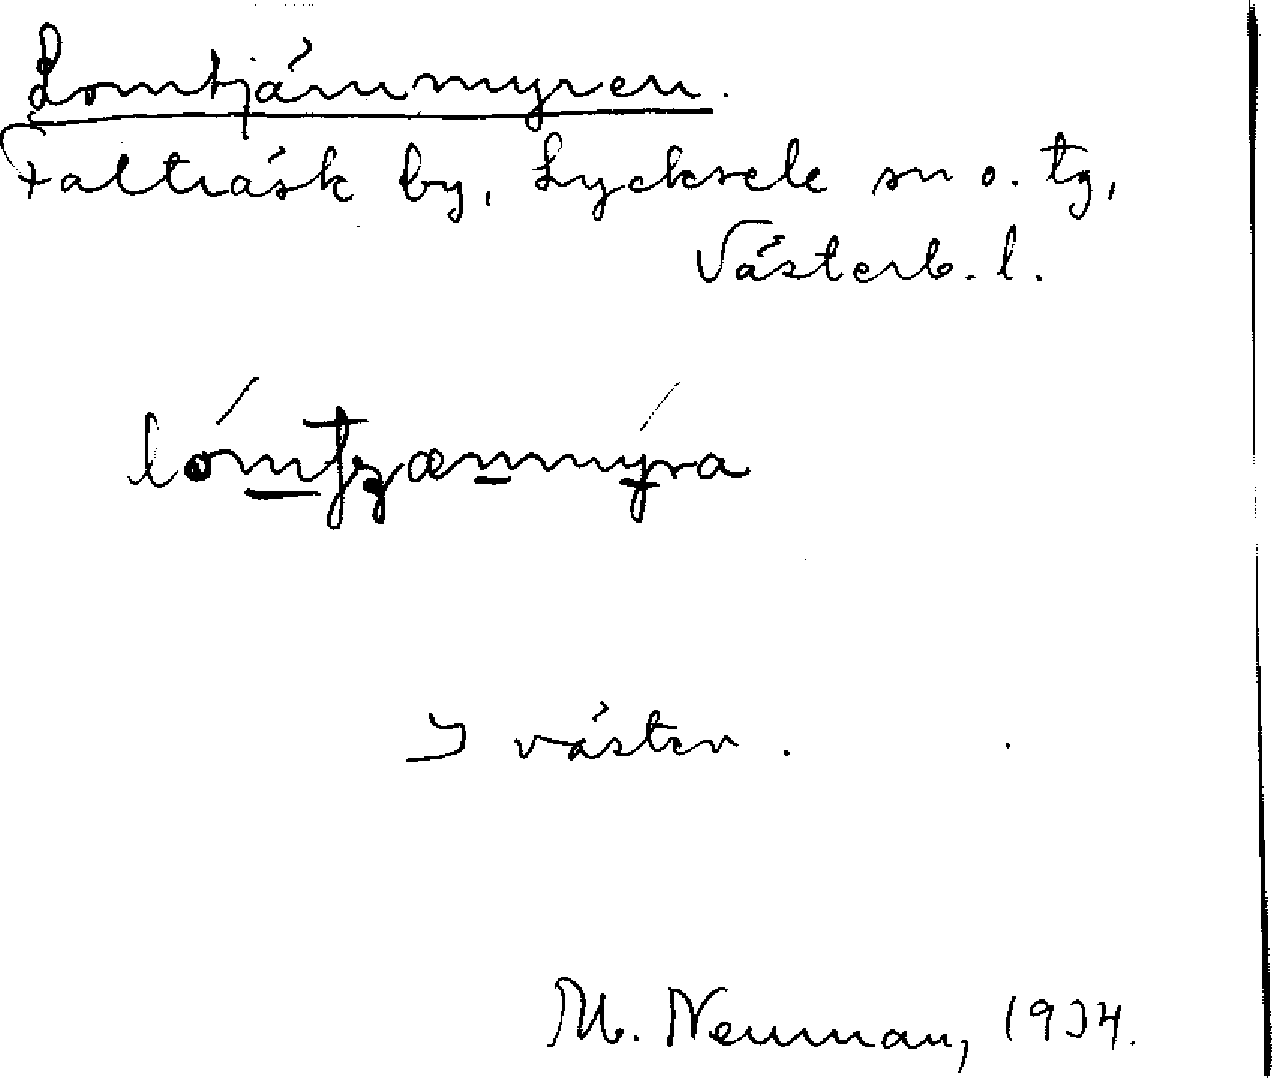 Lomtjärnmyren.
Falträsk by, Lycksele sn o. tg,
Västerb. l.
I väster.
M. Neuman, 1934.